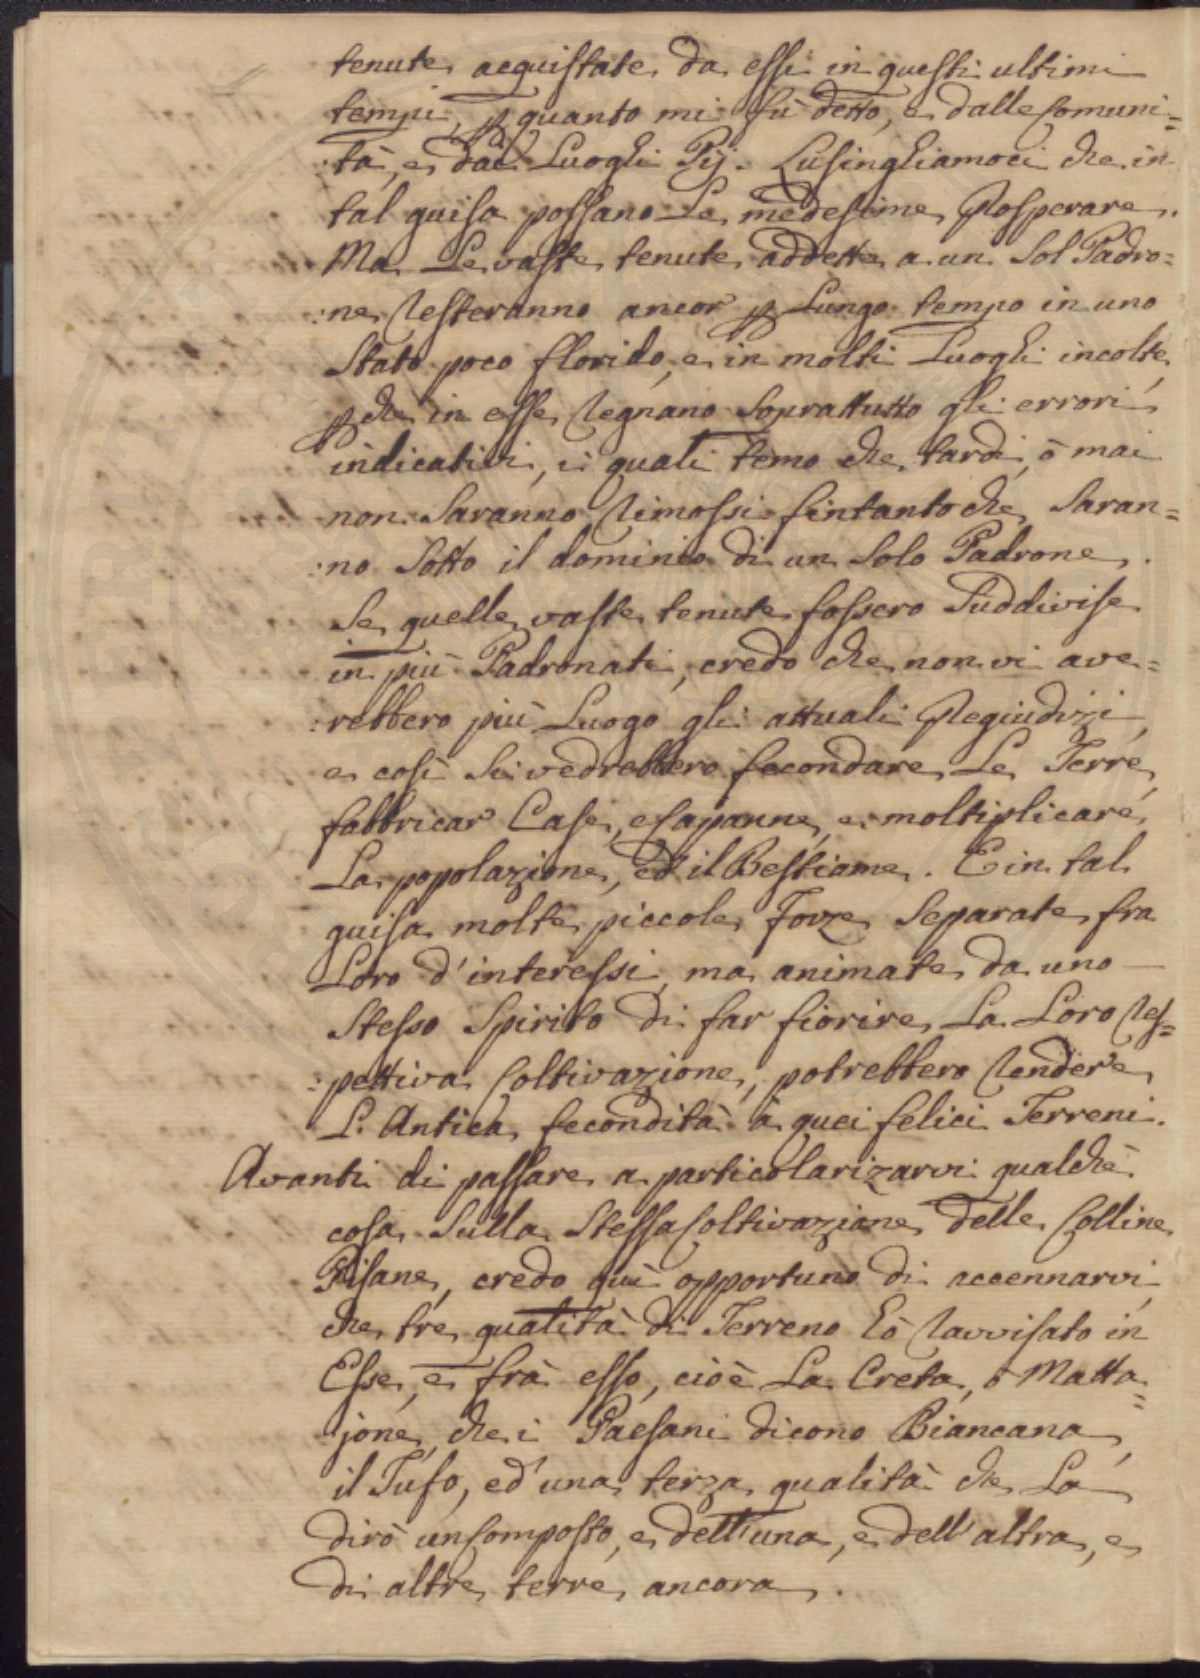 tenute acquistate da essi in questi ultimi
tempi, p quanto mi fù detto, e dalle Comuni=
:tà, e dai Luoghi Pij. Lusinghiamoci che in
tal guisa possano Le medesime Prosperare.
Ma Le vaste tenute addette a un Sol Padro=
:ne resteranno ancor p Lungo tempo in uno
Stato poco florido, e in molti Luoghi incolte,
p che in esse regnano soprattutto gli errori
indicativi, i quali temo che tardi, ò mai
non Saranno rimossi fintanto che Saran=
:no Sotto il dominio di un Solo Padrone.
Se quelle vaste tenute fossero Suddivise
in più Padronati, credo che non vi ave=
:rebbero più Luogo gli attuali Pregiudizi,
e così Si vedrebbero fecondare Le Terre,
fabbricar Case, e Capanne, e moltiplicare
La popolazione, ed il Bestiame. E in tal
guisa molte piccole Forze Separate fra
Loro d'interessi, ma animate da uno
Stesso Spirito di far fiorire La Loro res=
:pettiva Coltivazione, potrebbero rendere
L'Antica fecondità à quei felici Terreni.
Avanti di passare a particolarizarvi qualche
cosa Sulla Stessa Coltivazione delle Colline
Pisane, credo quì opportuno di accennarvi,
che tre qualità di Terreno hò ravvisato in
Esse, e frà esso, cioè La Creta, ò Matta=
jone, che i Paesani dicono Biancana,
il Tufo, ed una terza qualità che La
dirò un Composto, e dell'una, e dell'altra, e
di altre terre ancora.